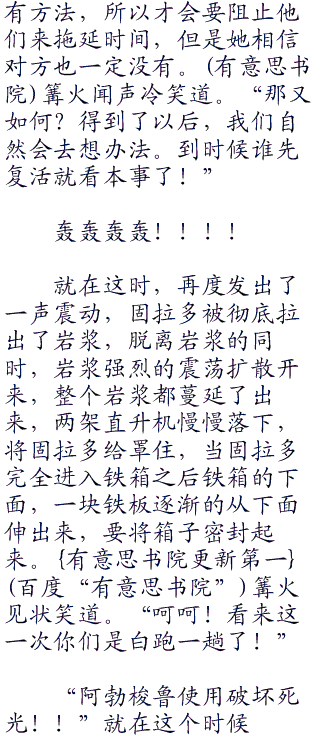 有方法，所以才会要阻止他
们来拖延时间，但是她相信
对方也一定没有。(有意思书
院)篝火闻声冷笑道。“那又
如何？得到了以后，我们自
然会去想办法。到时候谁先
复活就看本事了！”
轰轰轰轰！！！！
就在这时，再度发出了
一声震动，固拉多被彻底拉
出了岩浆，脱离岩浆的同
时，岩浆强烈的震荡扩散开
来，整个岩浆都蔓延了出
来，两架直升机慢慢落下，
将固拉多给罩住，当固拉多
完全进入铁箱之后铁箱的下
面，一块铁板逐渐的从下面
伸出来，要将箱子密封起
来。{有意思书院更新第一}
(百度“有意思书院”)篝火
见状笑道。“呵呵！看来这
一次你们是白跑一趟了！”
“阿勃梭鲁使用破坏死
光！！”就在这个时候